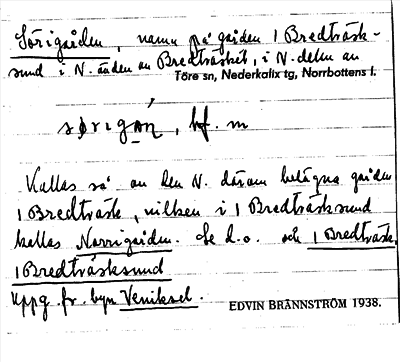 Sörigården, namn på gården 1 Bredträsk-
sund i N. änden av Bredträsket, i N. delen av
Töre sn, Nederkalix tg, Norrbottens l.
sørigαṇ, bf. m
Kallas så av den N. därom belägna gården
1 Bredträsk, vilken i 1 Bredträsksund
kallas Norrigården. Se d.o. och 1 Bredträsk,
1 Bredträsksund
Uppg. fr. byn
EDVIN BRÄNNSTRÖM 1938.